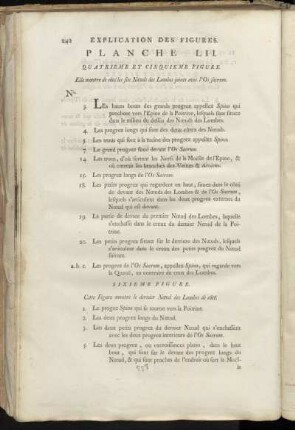 242 EXPLICATION DES FIGURES.
PLANCHE LII.
QUATRIEME ET CINQUIEME FIGURE.
Elle montre de côté les six Nœuds des Lombes joints avec l'Os sacrum.
No.
3. Les hauts bouts des grands progrez appellez Spine qui
panchent vers l'Epine de la Poitrine, lesquels sont situez
dans le milieu du dessus des Nœuds des Lombes.
4. Les progrez longs qui sont des deux côtez des Nœuds.
5. Les trous qui sont à la racine des progrez appellez Spina.
7. Le grand progrez situé devant l'Os Sacrum.
14. Les trous, d'où sortent les Nerfs de la Moelle de l'Epine, &
où entrent les branches des Veines & Arteres.
17. Les progrez longs de l'Os Sacrum.
18. Les petits progrez qui regardent en haut, situez dans le côté
de devant des Nœuds des Lombes & de l'Os Sacrum,
lesquels s'articulent dans les deux progrez externes du
Nœud qui est devant.
19. La partie de devant du premier Nœud des Lombes, laquelle
s'enchasse dans le creux du dernier Nœud de la Poi-
trine.
20. Les petits progrez situez sur le derriere des Nœuds, lesquels
s'articulent dans le creux des petits progrez du Nœud
suivant.
a.b.c. Les progrez de l'Os Sacrum, appellez Spina, qui regardent vers
la Queuë, au contraire de ceux des Lombes.
SIXIEME FIGURE.
Cette Figure montre le dernier Nœud des Lombes de côté.
1. Le progrez Spina qui se tourne vers la Poitrine.
2. Les deux progrez longs du Nœud.
3. Les deux petits progrez du dernier Nœud qui s'enchassent
avec les deux progrez interieurs de l'Os Sacrum.
5. Les deux progrez, ou connoissement plates, dans le haut
bout, qui sont sur le devant des progrez longs du
Nœud, & qui sont proches de l'endroit où sort la Moel-
le